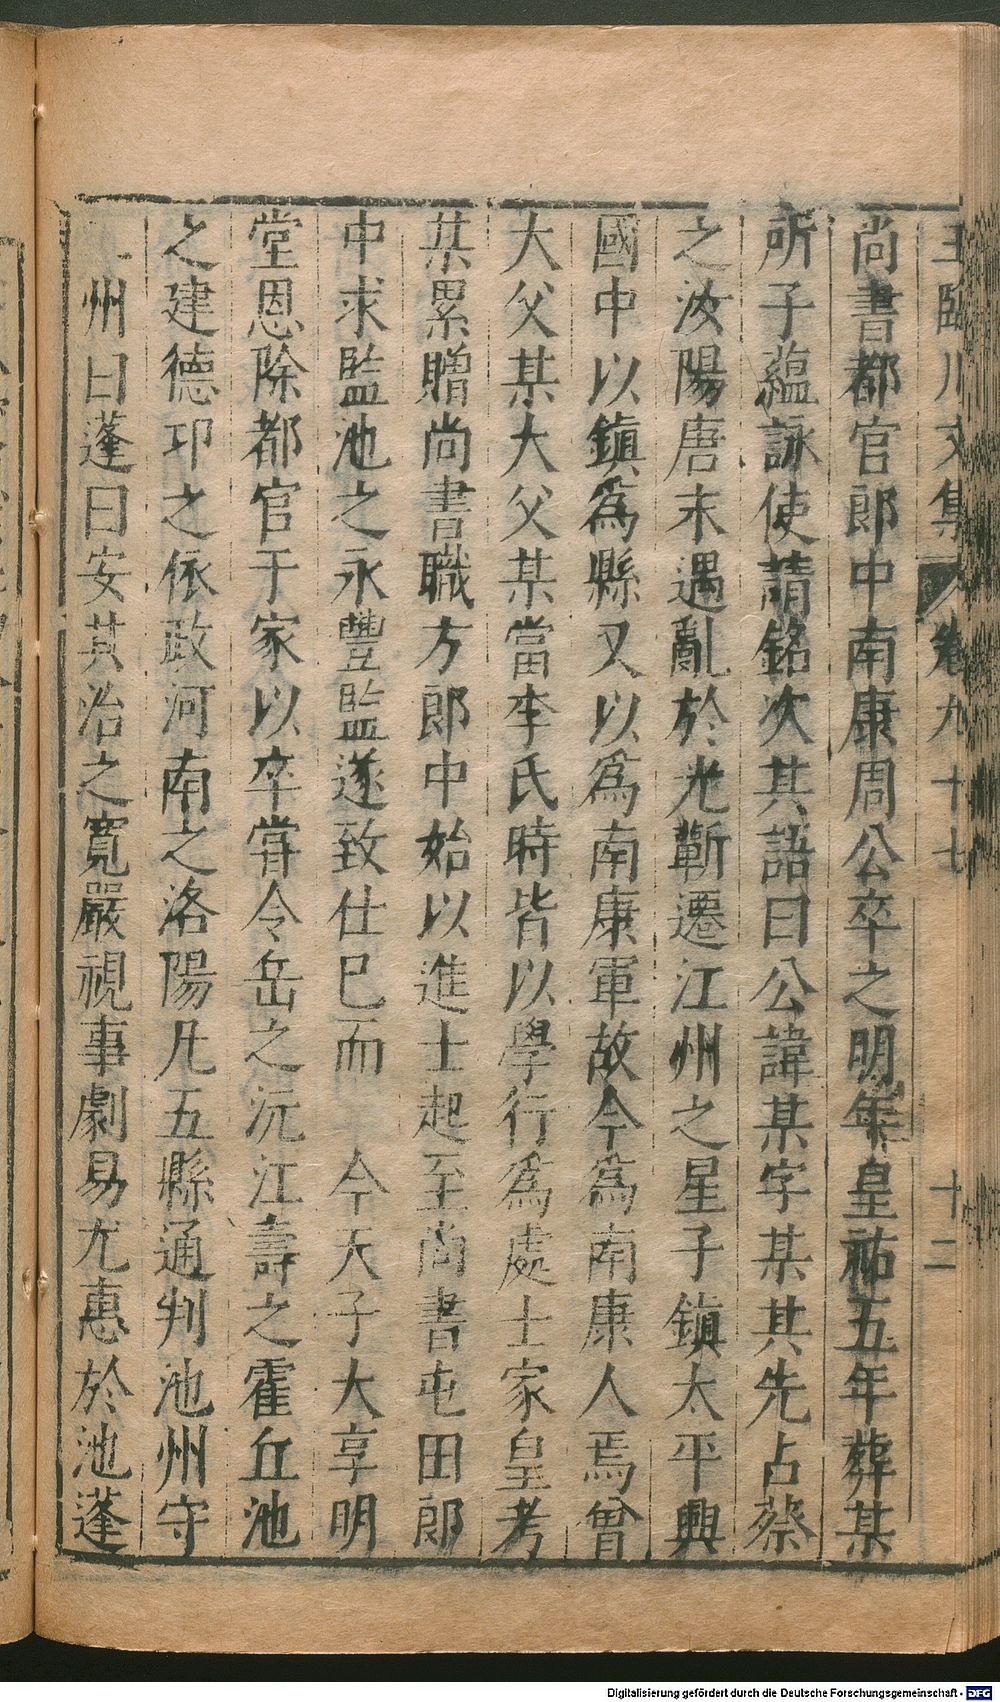 王臨川文集 卷九十七 十二
尚書都官郎中南康周公卒之明年皇祐五年葬某
所子蘊詠使請銘次其語曰公諱某字某其先占蔡
之汝陽唐末遇亂於光蘄遷江州之星子鎮太平興
國中以鎮爲縣又以爲南康軍故今爲南康人焉曾
大父某大父某當李氏時皆以學行爲處士家皇考
某累贈尚書職方郎中始以進士起至尚書屯田郎
中求監池之永豐監遂致仕已而 今天子大享明
堂恩除都官于家以卒甞令岳之沅江壽之霍丘池
之建德邛之依政河南之洛陽凡五縣通判池州守
州曰蓬曰安其治之寬嚴視事劇易尤惠於池蓬
Digitalisierung gefördert durch die Deutsche Forschungsgemeinschaft - DFG